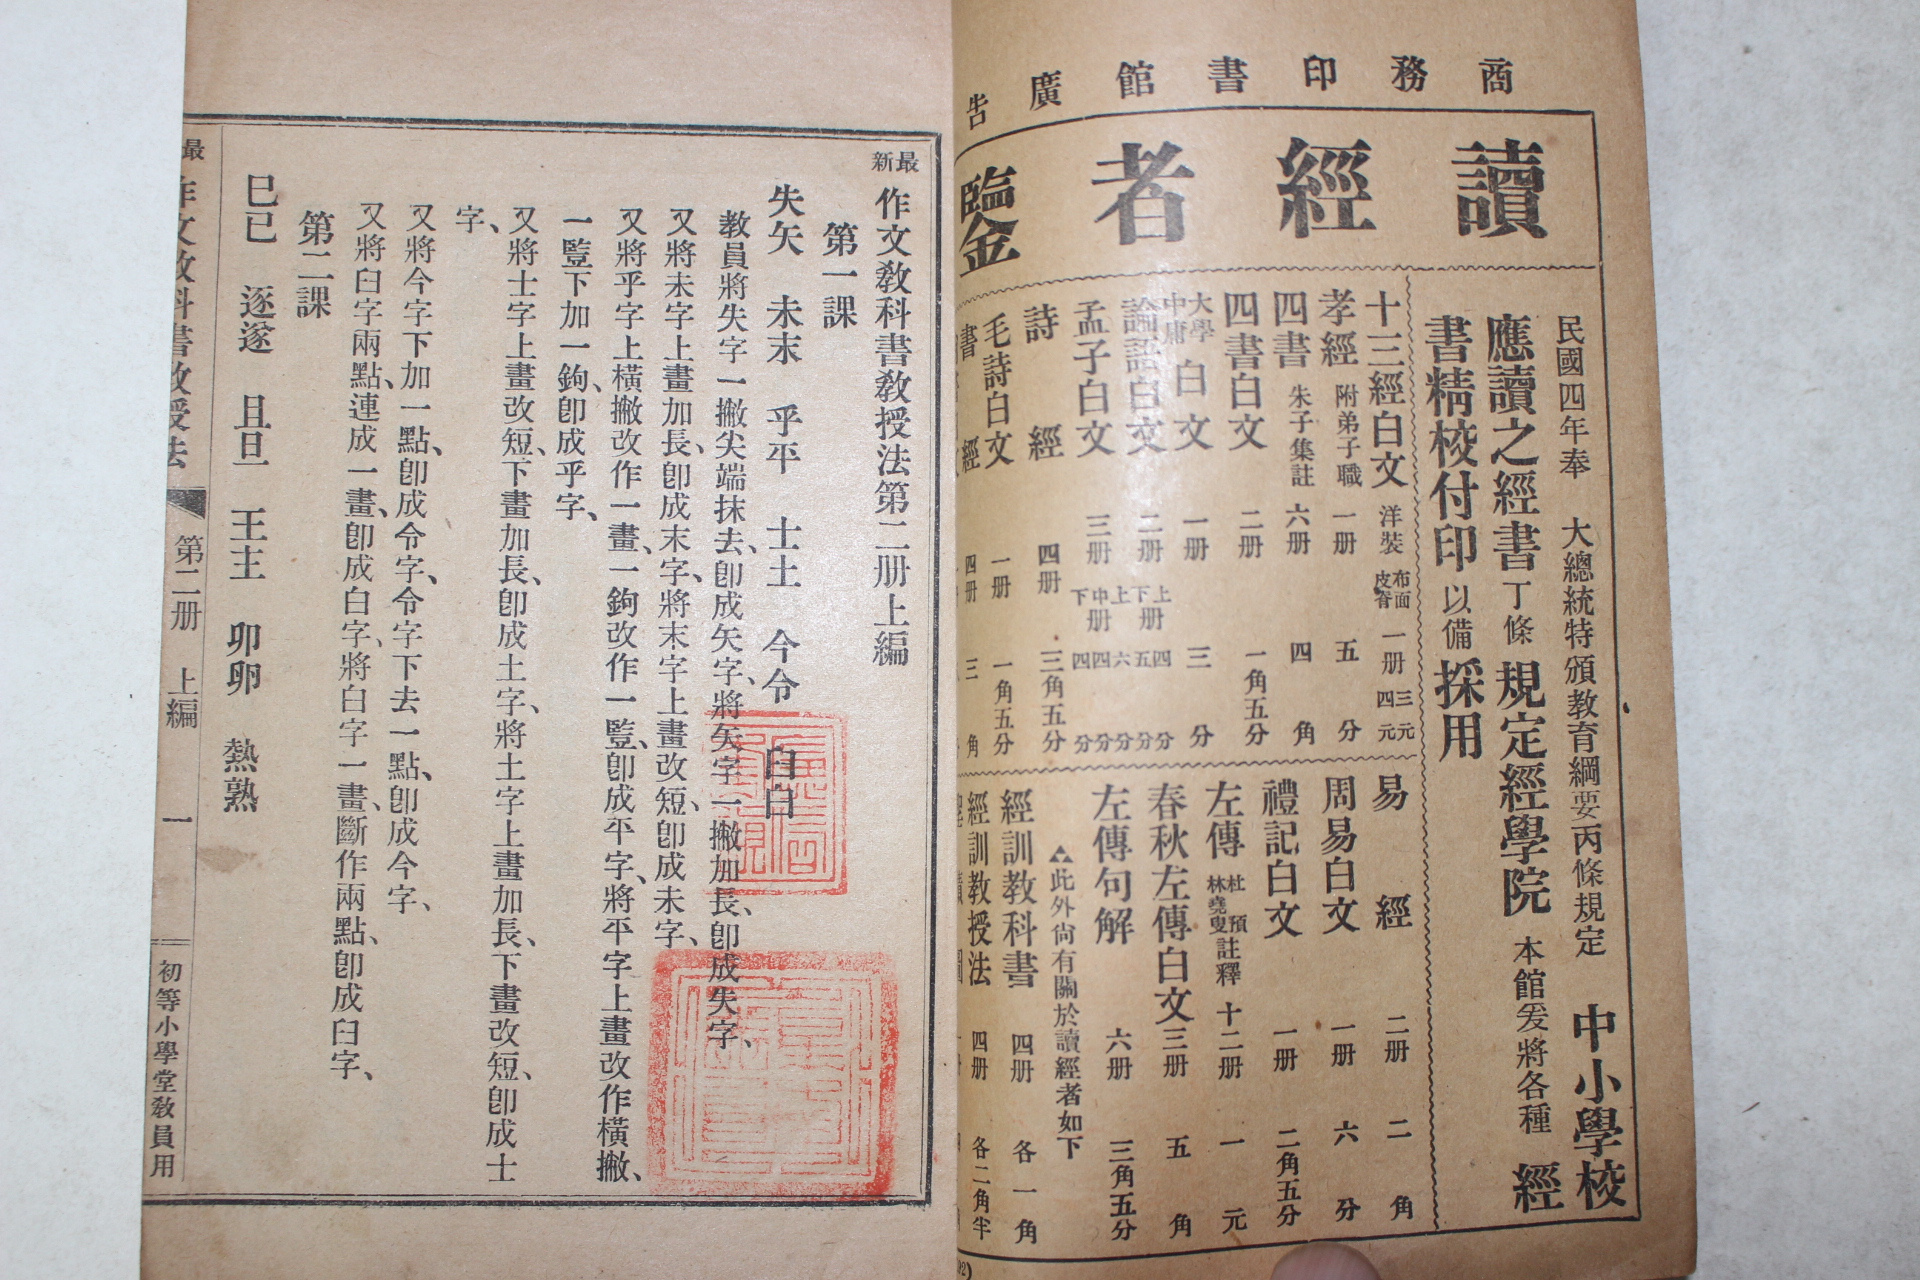 商務印書館廣告
讀經者鑒
民國四年奉 大總統特頒教育綱要丙條規定 中小學校
應讀之經書丁條規定經學院本館爰將各種經
書精校付印以備採用
十三經白文 洋裝 布面 皮脊 一册 三元 四元
孝經 附弟子職 一册 五分
四書 朱子集註 六册 四角
四書白文 二册 一角五分
大學 中庸 白文 一册 三分
論語白文 二册 上 下册 四分 五分
孟子白文 三册 上 中册 下 六分 四分 四分
詩經 四册 三角五分
毛詩白文 一册 一角五分
書經 四册 三角
易經 二册 二角
周易白文 一册 六分
禮記白文 一册 二角五分
左傳 杜預 林堯叟 註釋 十二册 一元
春秋左傳白文 三册 五角
左傳句解 六册 三角五分
此外尙有關於讀經者如下
經訓教科書 四册 各一角
經訓教授法 四册 各二角半
最新作文教科書教授法第二册上編
第一課
失矢 未末 乎平 士土 今令 臼白
教員將失字一撇尖端抹去、卽成矢字、將矢字一撇加長、卽成失字、
又將未字上畫加長、卽成末字、將末字上畫改短、卽成未字、
又將乎字上橫撇改作一畫、一鉤改作一豎、卽成平字、將平字上畫改作橫撇、
一豎下加一鉤、卽成乎字、
又將士字上畫改短、下畫加長、卽成土字、將土字上畫加長、下畫改短、卽成士
字、
又將今字下加一點、卽成令字、令字下去一點、卽成今字、
又將臼字兩點、連成一畫、卽成白字、將白字一畫、斷作兩點、卽成臼字、
第二課
巳已 逐遂 且旦 王主 卯卵 熱熟
最 作文教科書教授法 第二册 上編 一 初等小學堂教員用